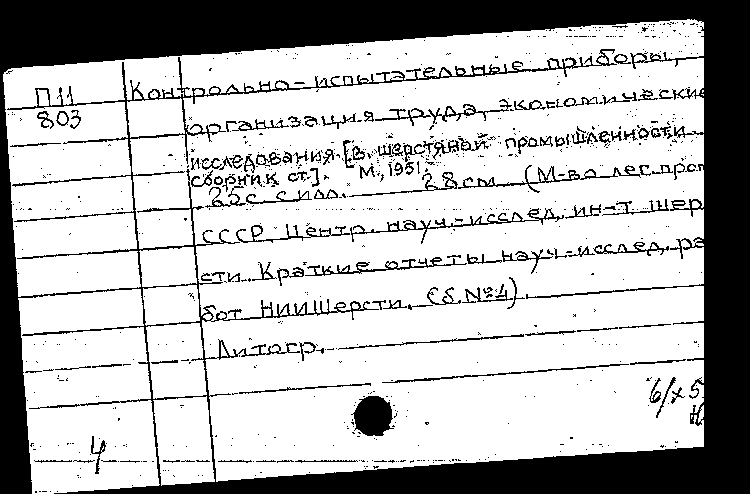 П11
803
Контрольно-испытательные приборы,
организация труда, экономические
исследования [В шерстяной промышленности
сборник ст.]. М., 1951.
22с с илл. 28см (М-во лег. пром
СССР. Центр. науч.-исслед. ин-т шер
сти. Краткие отчеты науч.-исслед. ра
бот НИИШерсти. (б. №4).
Литогр.
6/х 5
4